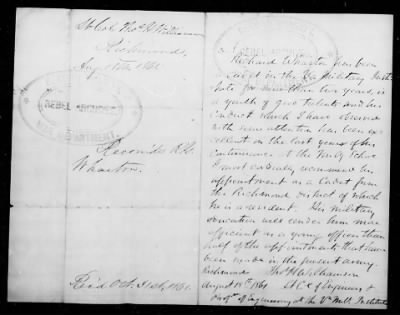 Lt Col Thos H Williamson
Richmond,
Aug 18th 1861
REBEL ARCHIVES
WAR DEPARTMENT
Recom'ds R.
Wharton
Rec'd Oct. 31st 1861.
Richard Wharton has been
a Cadet in the Va Military Insti
tute for more than two years, is
a youth of good talents and his
conduct which I have observed
with some attention has been ex
cellent in the last years of his
continuance at the Mil'y School
I most cordially recommend his
appointment as a Cadet from
the Richmond district of which
he is a resident. His military
education will render him more
efficient as a young officer than
half of the appointments that have
been made in the present army
Richmond Thos H Williamson
August 18th 1861 Lt Col of Engineers &
Prof of Engineering at the Va Mil. Institute
REBEL ARCHIVES